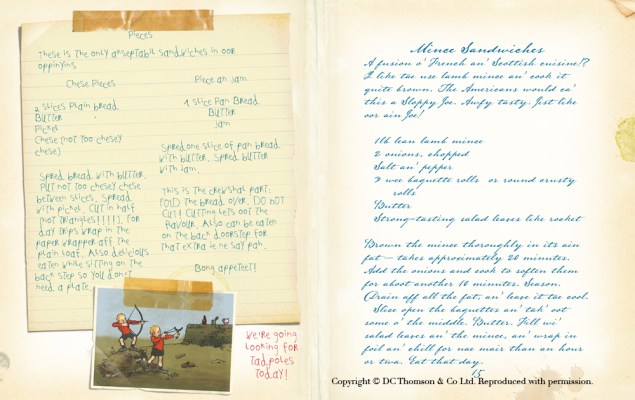 Pieces
These is the only anseptabil sandwiches in oor
oppinyins
Chese Pieces
2 slices Plain bread
Butter
Pickel
Chese (not too chesey
chese)
Spred bread with butter.
Put not too chesey chese
between slices. Spread
with pickel. Cut in half
(not triangles!!!!!). For
day trips wrap in the
paper wrapper aff the
plain loaf. Also delicious
eaten while sitting on the
back step so you donet
need a plate.
Piece an Jam
1 slice Pan Bread
Butter
Jam
Spred one slice of pan bread
with butter. Spred butter
with jam.
This is the crewshal part:
fold the bread over. Do not
cut! Cutting lets oot the
flavour. Also can be eaten
on the back doorstep for
that extra je ne say pah.
Bong appeteet!
We're going
looking for
tadpoles
today!
Mince Sandwiches
A fusion o' French an' Scottish cuisine!?
I like tae use lamb mince an' cook it
quite brown. The Americans would ca'
this a Sloppy Joe. Awfy tasty. Jist like
oor ain Joe!
1lb lean lamb mince
2 onions, chopped
Salt an' pepper
2 wee baguette rolls or round crusty
rolls
Butter
Strong-tasting salad leaves like rocket
Brown the mince thoroughly in its ain
fat – takes approximately 20 minutes.
Add the onions and cook to soften them
for aboot another 10 minutes. Season.
Drain off all the fat, an' leave it tae cool.
Slice open the baguettes an' tak' oot
some o' the middle. Butter. Fill wi'
salad leaves an' the mince, an' wrap in
foil an' chill for nae mair than an hour
or twa. Eat that day.
15
Copyright © DC Thomson & Co Ltd. Reproduced with permission.